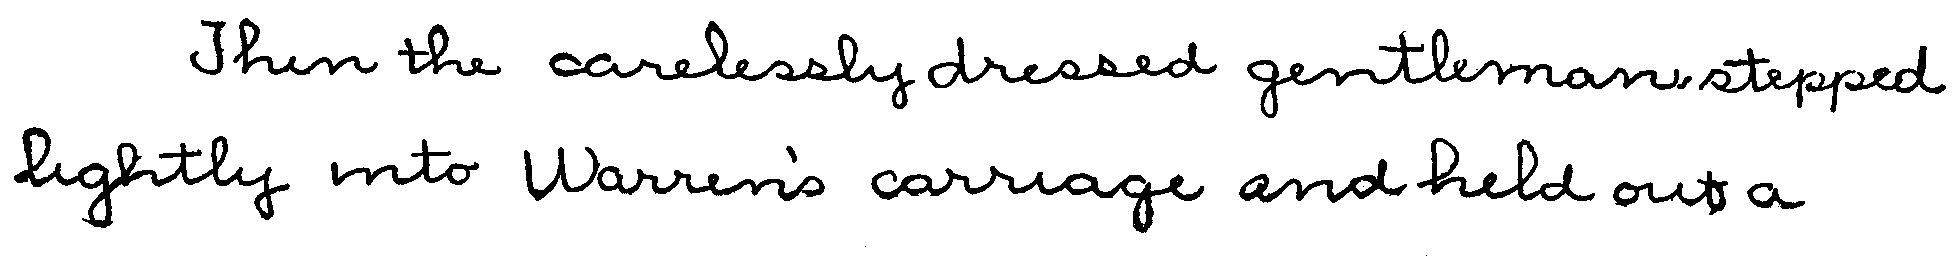 Then the carelessly dressed gentleman stepped
lightly into Warren's carriage and held out a